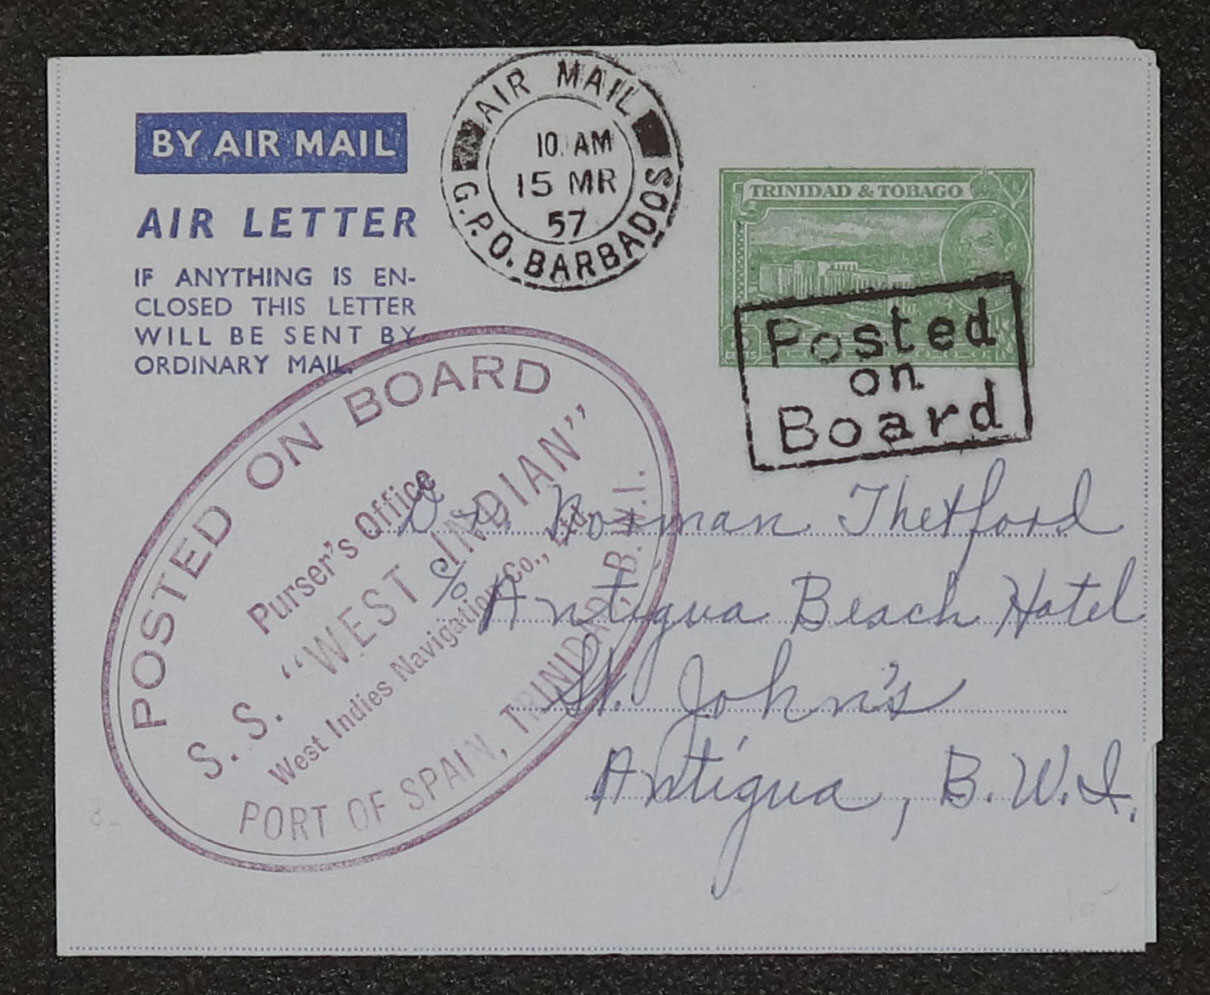 BY AIR MAIL
AIR LETTER
IF ANYTHING IS EN-
CLOSED THIS LETTER
WILL BE SENT BY
ORDINARY MAIL.
AIR MAIL
10. AM
15 MR
57
G.P.O. BARBADOS
TRINIDAD & TOBAGO
Posted
on
Board
POSTED ON BOARD
Purser's Office
S. S. "WEST INDIAN"
West Indies Navigation Co., Ltd.
PORT OF SPAIN, TRINIDAD, B.W.I.
Dr. Norman Thetford
c/o Antigua Beach Hotel
St. John's
Antigua, B.W.I.